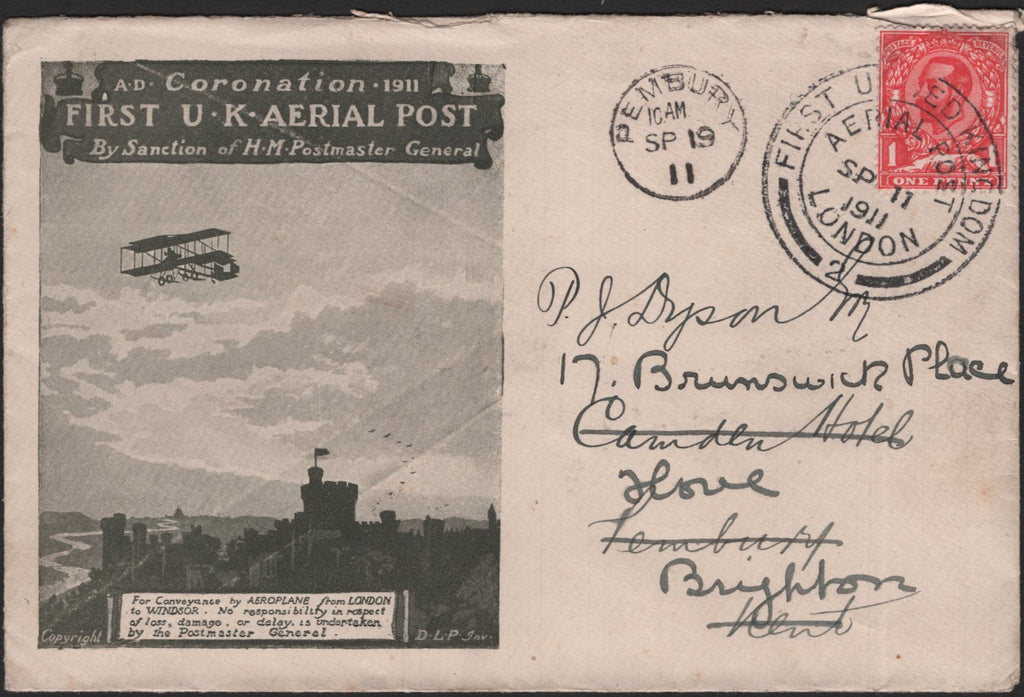 A·D· Coronation · 1911
FIRST U·K·AERIAL POST
By Sanction of H·M·Postmaster General
For Conveyance by AEROPLANE from LONDON
to WINDSOR. No responsibility in respect
of loss, damage, or delay, is undertaken
by the Postmaster General.
Copyright
D·L·P Inv.
PEMBURY
10 AM
SP 19
11
FIRST UNITED KINGDOM
AERIAL POST
SP 11
1911
LONDON
2
POSTAGE REVENUE
1
ONE PENNY
P. J. Dyson
17. Brunswick Place
Camden Hotel
Hove
Pembury
Brighton
Kent